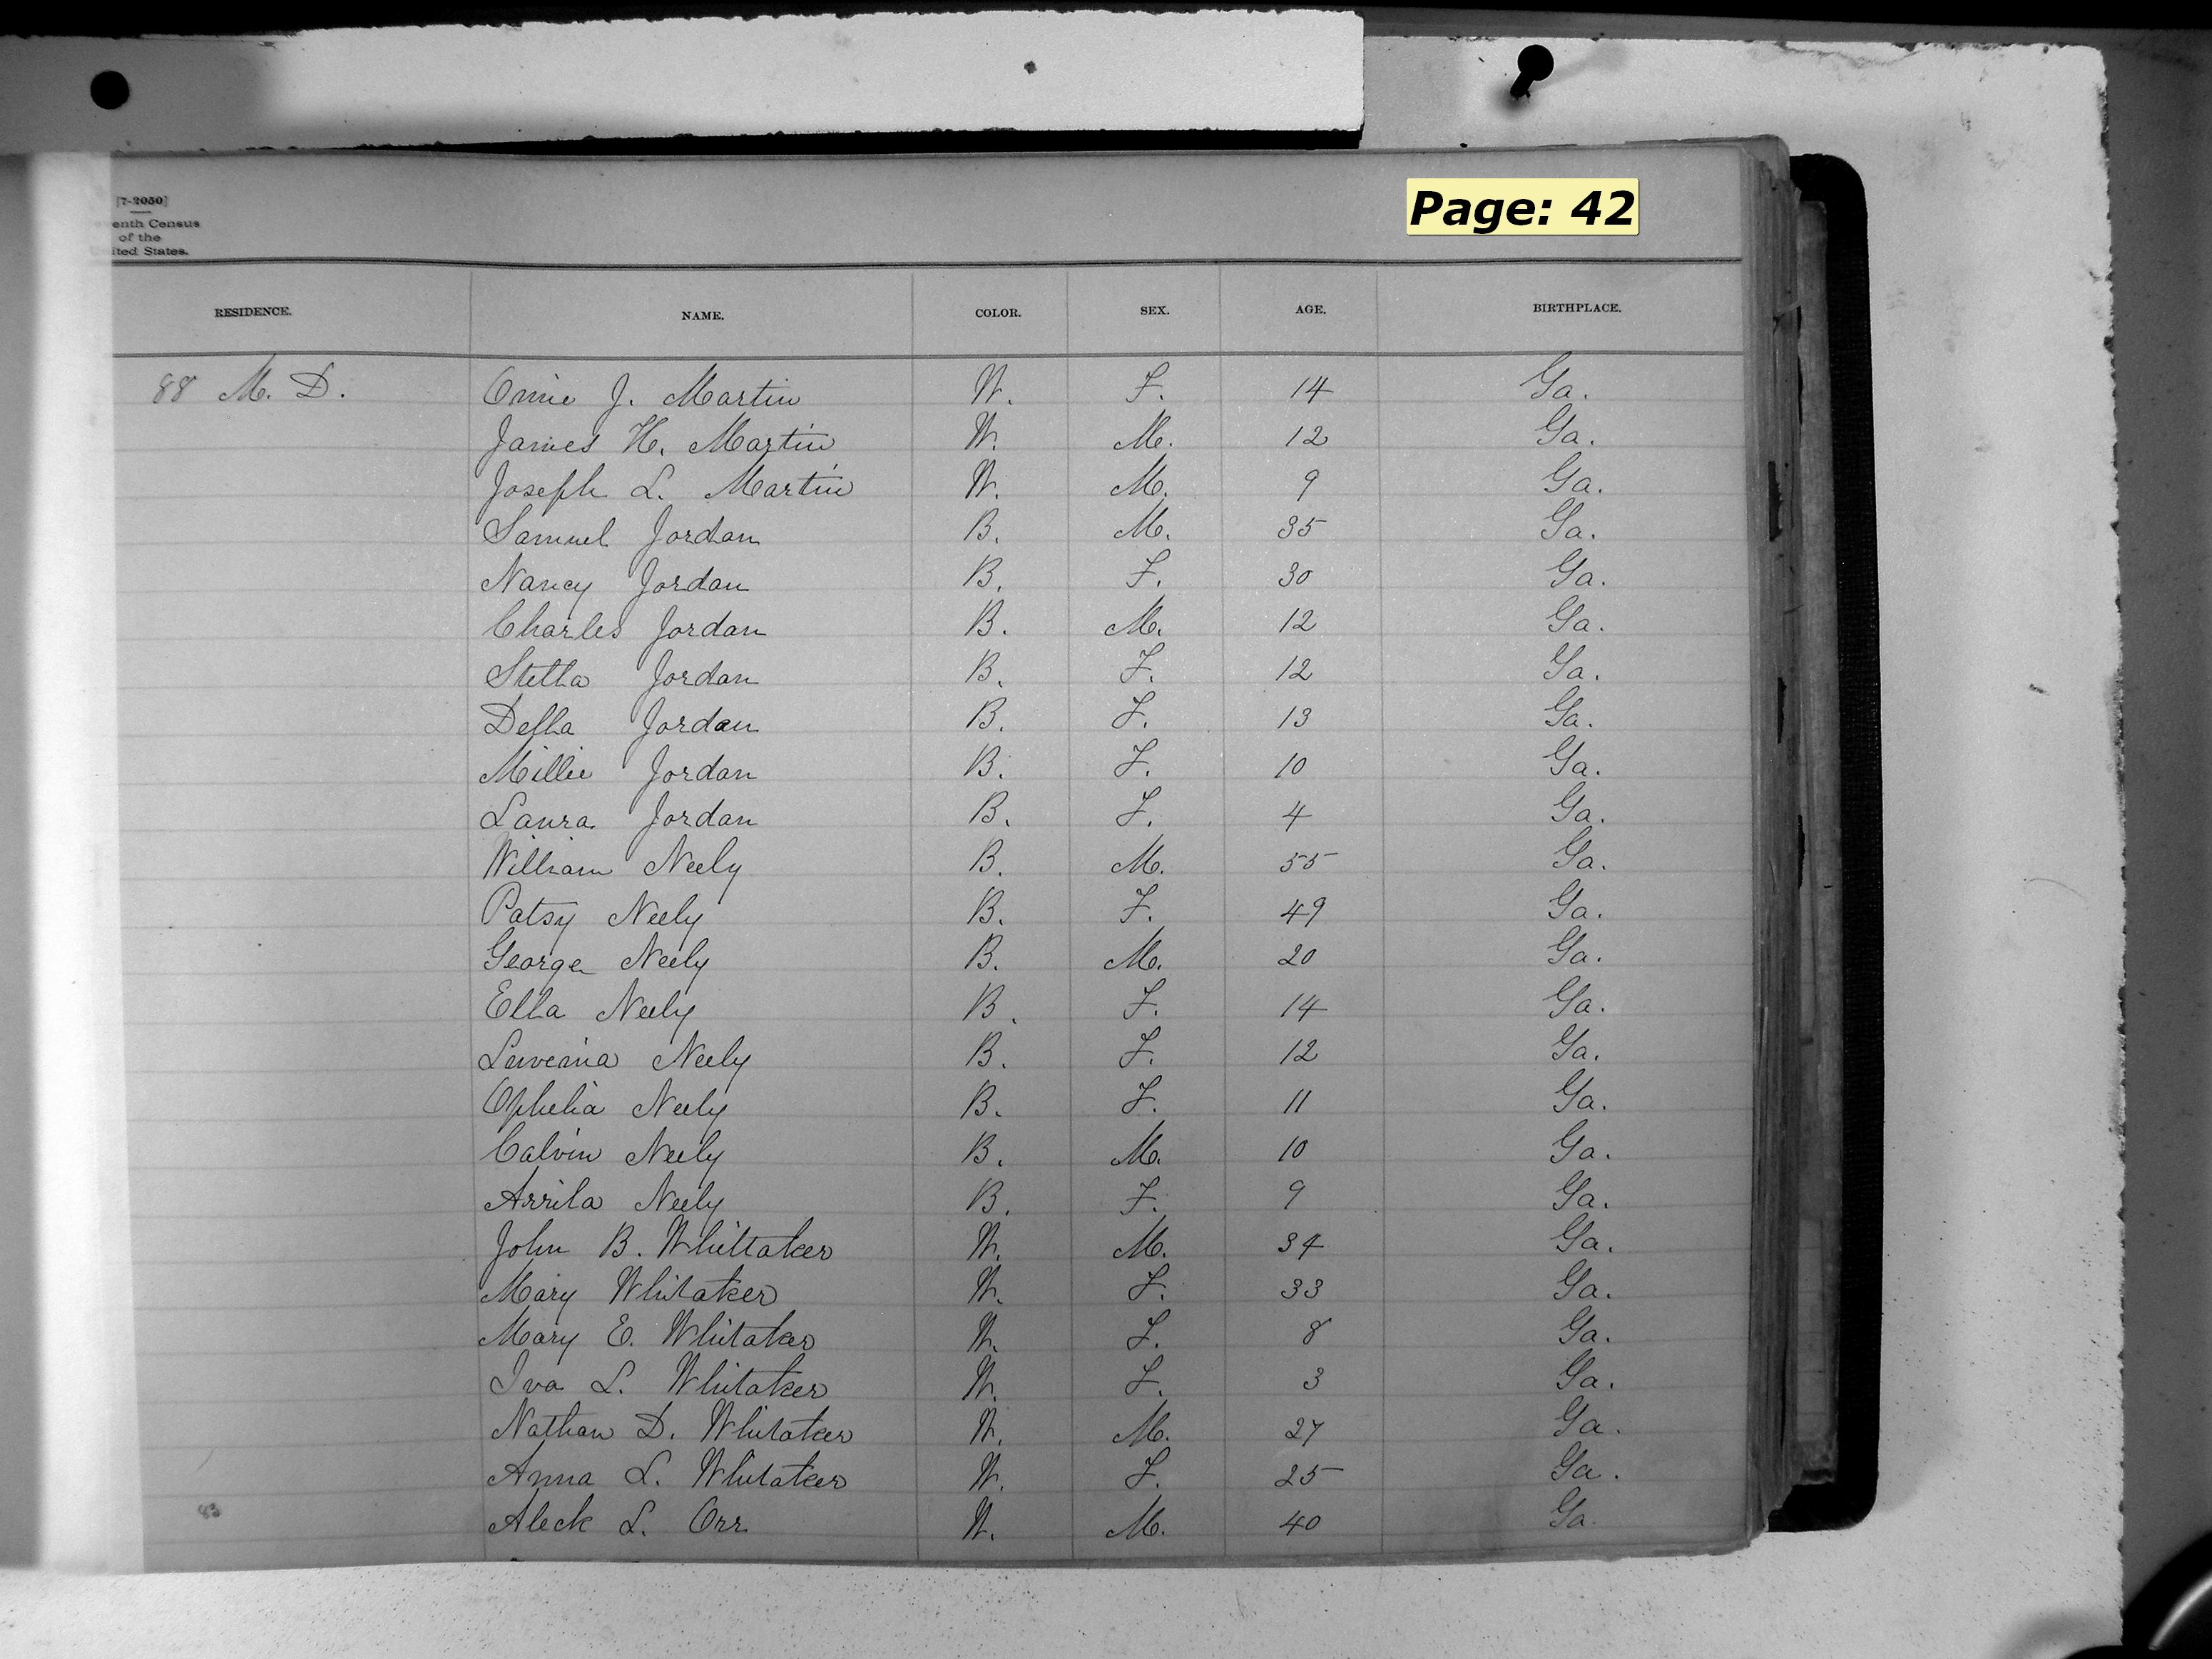 Page: 42
[7-2050]
enth Census
of the
ited States.
RESIDENCE. NAME. COLOR. SEX. AGE. BIRTHPLACE.
88 M. D. Omie J. Martin W. F. 14 Ga.
James H. Martin W. M. 12 Ga.
Joseph L. Martin W. M. 9 Ga.
Samuel Jordan B. M. 35 Ga.
Nancy Jordan B. F. 30 Ga.
Charles Jordan B. M. 12 Ga.
Stella Jordan B. F. 12 Ga.
Della Jordan B. F. 13 Ga.
Millie Jordan B. F. 10 Ga.
Laura Jordan B. F. 4 Ga.
William Neely B. M. 55 Ga.
Patsy Neely B. F. 49 Ga.
George Neely B. M. 20 Ga.
Ella Neely B. F. 14 Ga.
Neely B. F. 12 Ga.
Ophelia Neely B. F. 11 Ga.
Calvin Neely B. M. 10 Ga.
Arrila Neely B. F. 9 Ga.
John B. Whittaker W. M. 34 Ga.
Mary Whitaker W. F. 33 Ga.
Mary E. Whitaker W. F. 8 Ga.
Iva L. Whitaker W. F. 3 Ga.
Nathan D. Whitaker W. M. 27 Ga.
Anna L. Whitaker W. F. 25 Ga.
Aleck L. Orr W. M. 40 Ga.